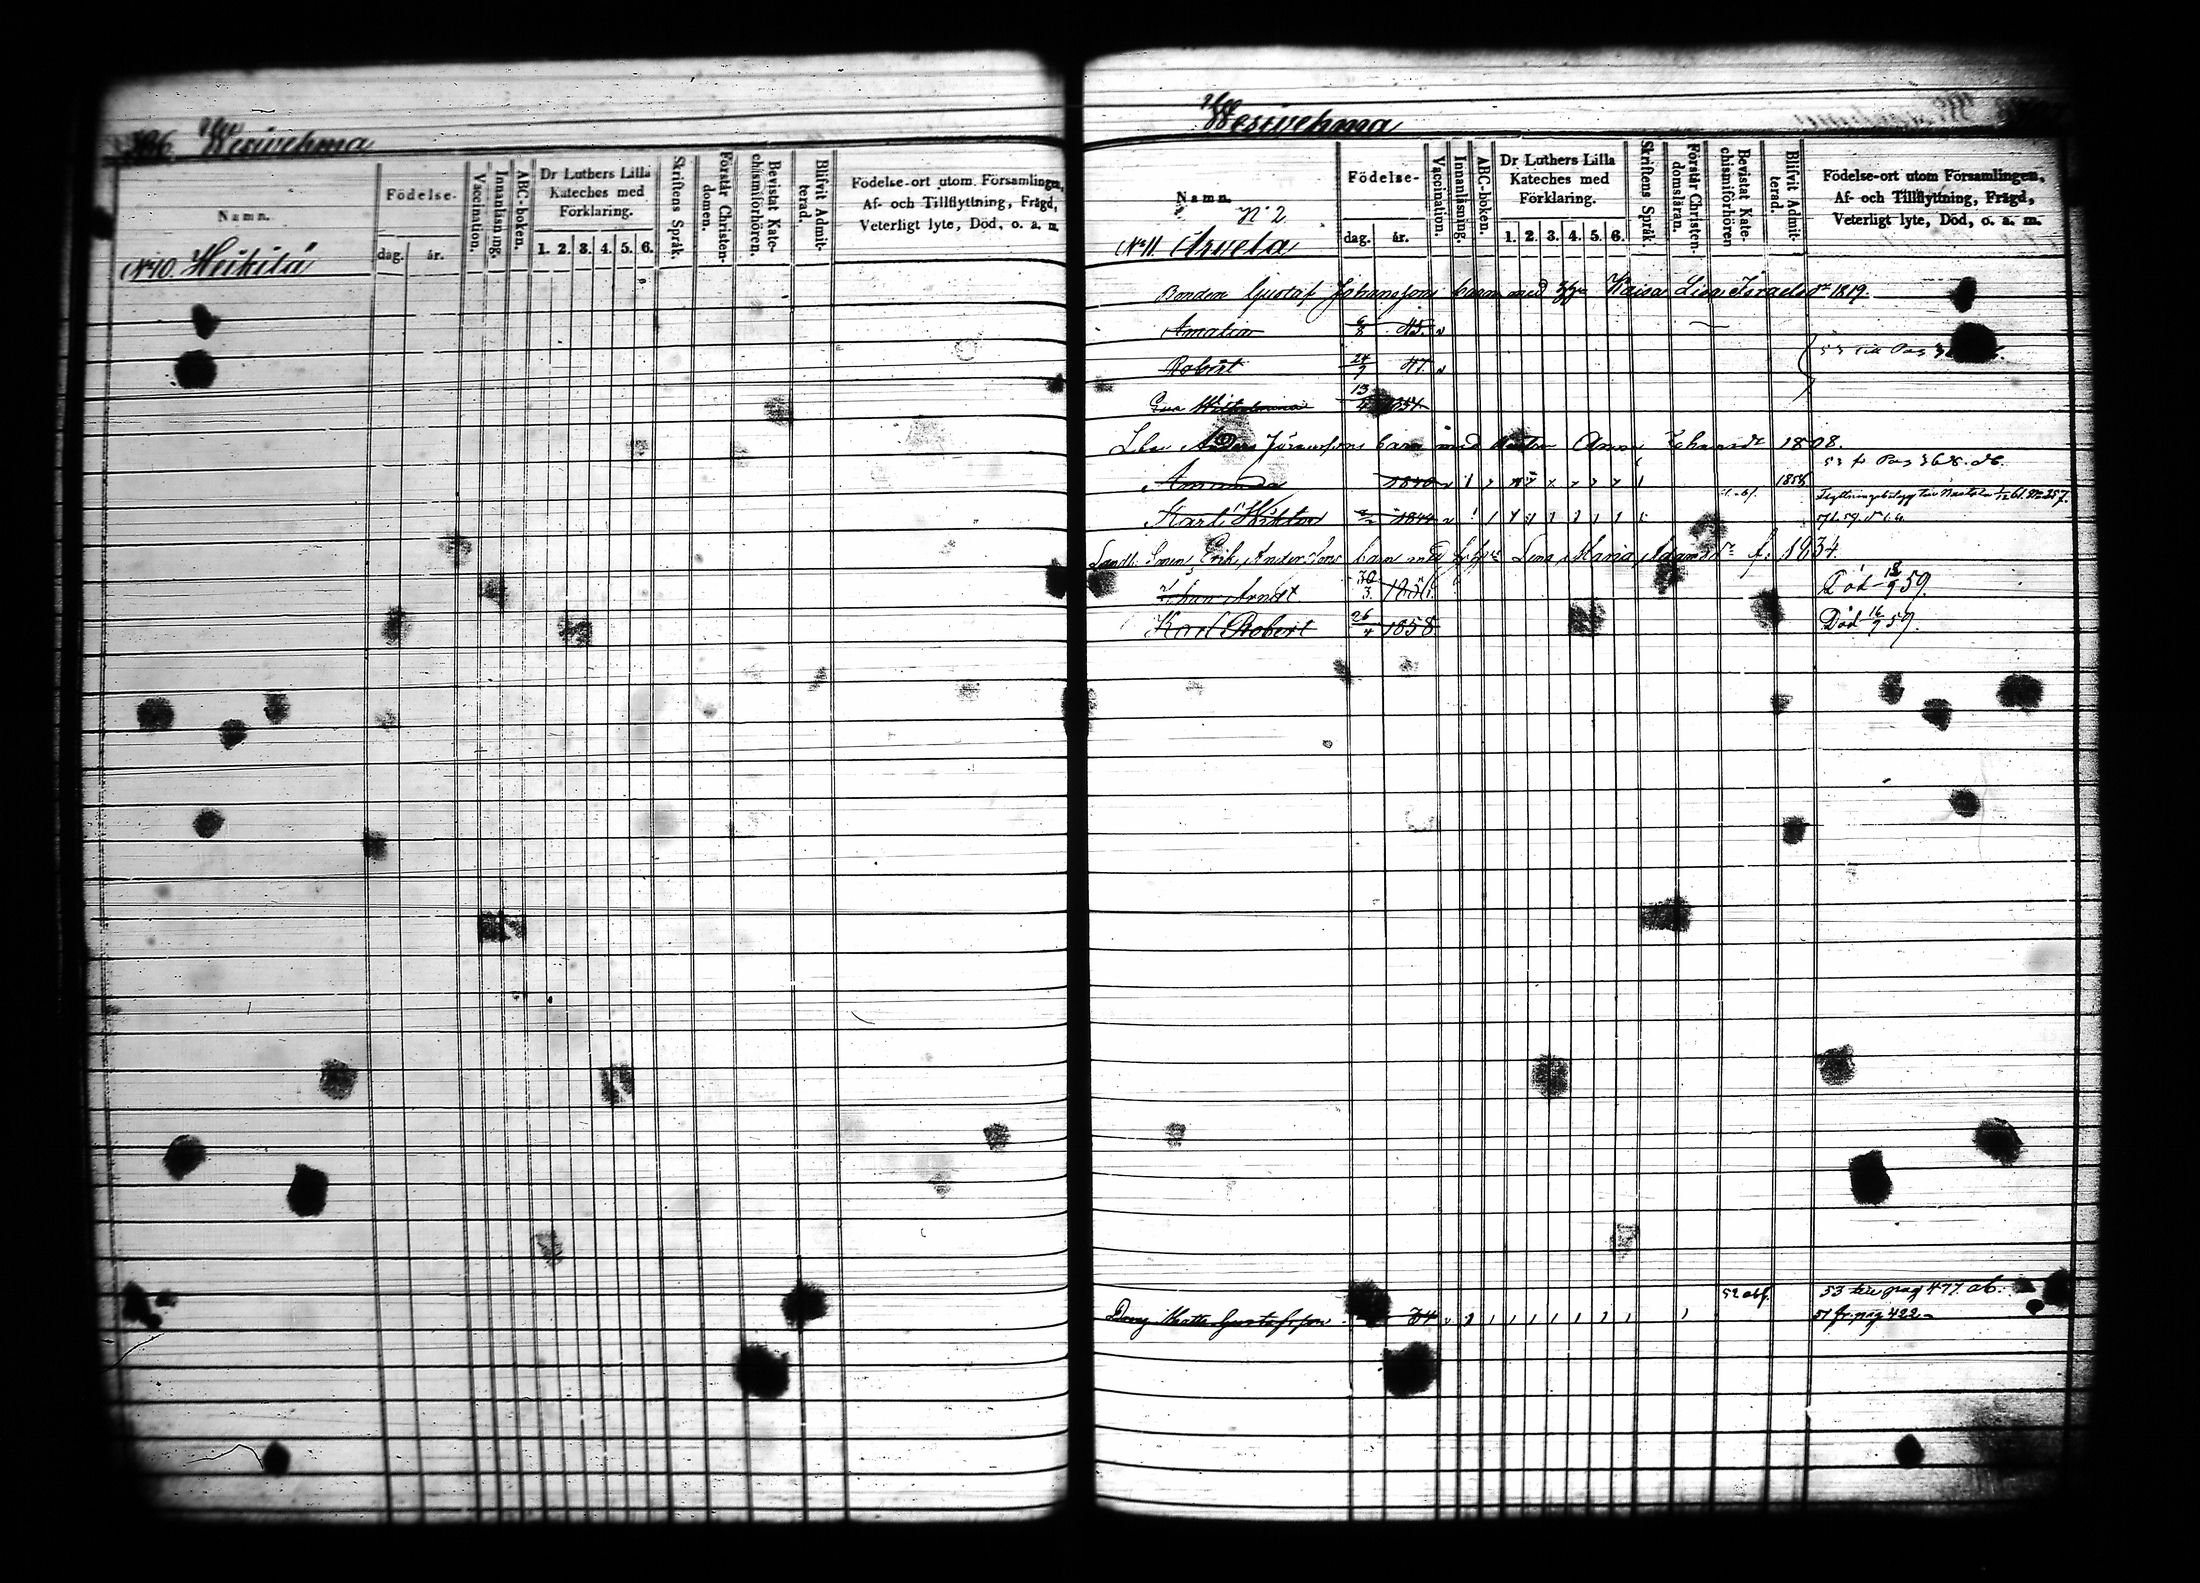 Wesivehma
Namn.
Födelse-
dag. år.
Vaccination.
Innanläsning.
ABC-boken.
Dr Luthers Lilla
Kateches med
Förklaring.
1. 2. 3. 4. 5. 6.
Skriftens Språk.
Förstår Christen-
domen.
Bevistat Kate-
chismiförhören.
Blifvit Admit-
terad.
Födelse-ort utom Församlingen,
Af- och Tillflyttning, Frägd,
Veterligt lyte, Död, o. a. m.
No 10. Heikilä
Wesivehma
Namn.
N:2
Födelse-
dag. år.
Vaccination.
Innanläsning.
ABC-boken.
Dr Luthers Lilla
Kateches med
Förklaring.
1. 2. 3. 4. 5. 6.
Skriftens Språk
Förstår Christen-
domsläran.
Bevistat Kate-
chismiförhören
Blifvit Admit-
terad.
Födelse-ort utom Församlingen,
Af- och Tillflyttning, Frägd,
Veterligt lyte, Död, o. a. m.
No 11. Arvela
Bonden Gustaf Johanssons barn med Kaisa Lisa Israelsdr 1819.
Amalia 6/8 45.
Robert 24/7 47. 53 till Pag
Eva Wilhelmina 13/4 1851
Anders Jöranssons barn med Anna Johansdr 1808.
53 fr Pag 368.
Amanda 1840 1858
Karl Wiktor 1844
Erik Anderssons barn med Lena Maria Adamsdr f. 1834.
Johan Arndt 30/3 1856 Död 18/9 59.
Karl Robert 26/4 1858 Död 16/9 59.
53 till pag 477. ab.
Dreng Matts Gustafsson 34 51 fr. pag 422